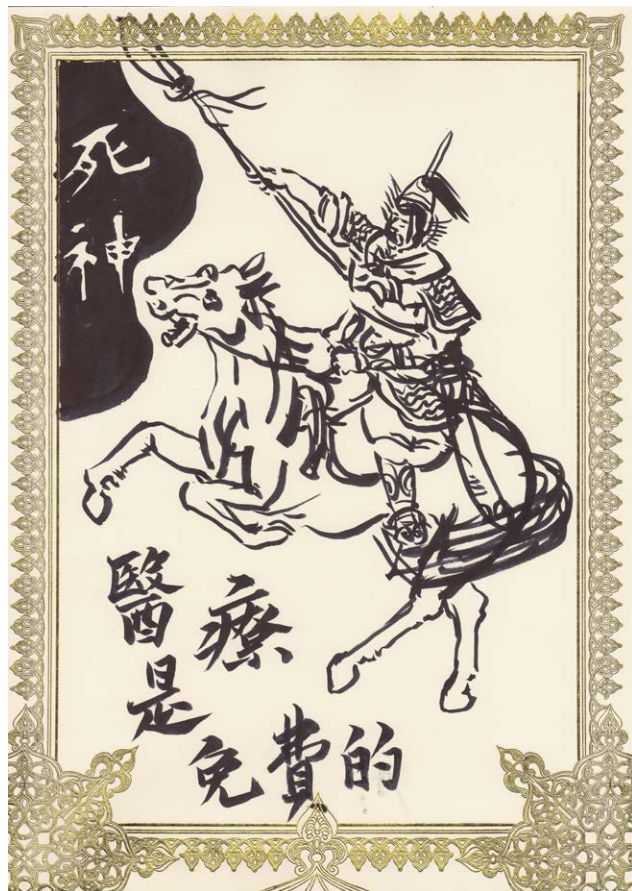 死神
醫療
是
免費的